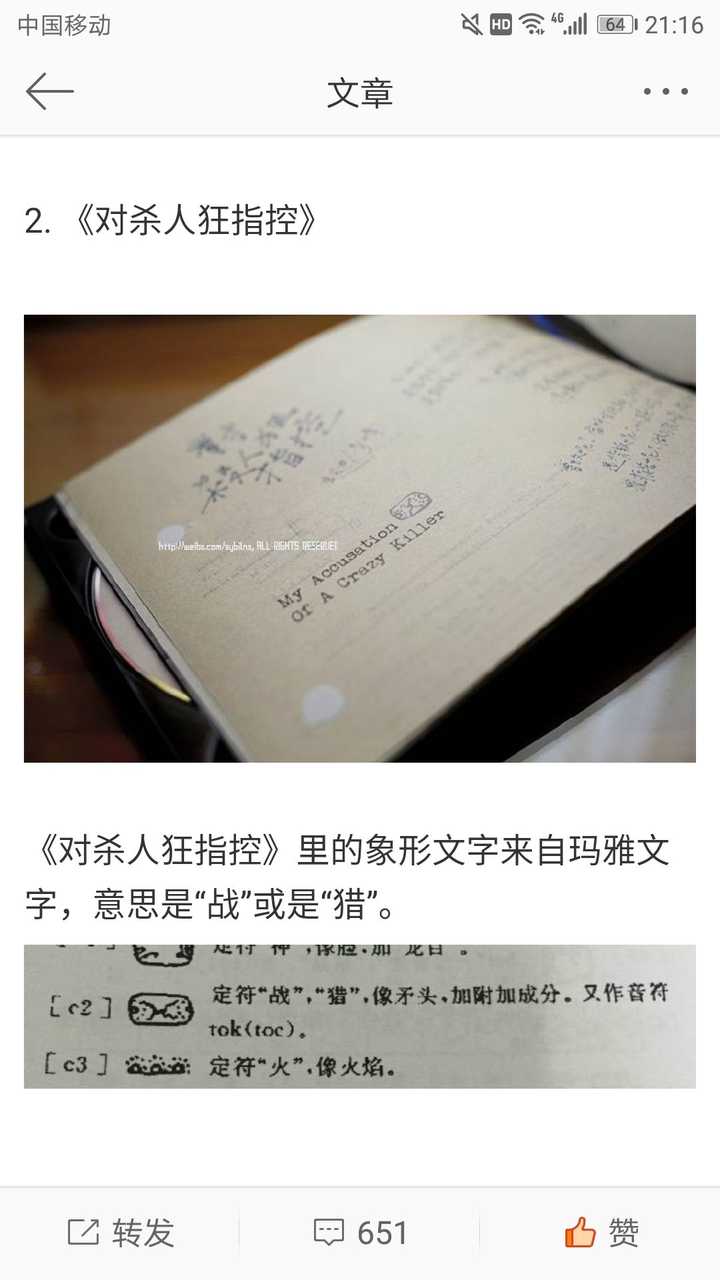 中国移动
HD
4G
64
21:16
文章
2. 《对杀人狂指控》
杀人狂
指控
http://weibo.com/sybilns, ALL RIGHTS RESERVED
My Accusation
Of A Crazy Killer
《对杀人狂指控》里的象形文字来自玛雅文
字，意思是“战”或是“猎”。
[c2] 定符“战”,“猎”,像矛头,加附加成分。又作音符
tok(toc)。
[c3] 定符“火”,像火焰。
转发
651
赞